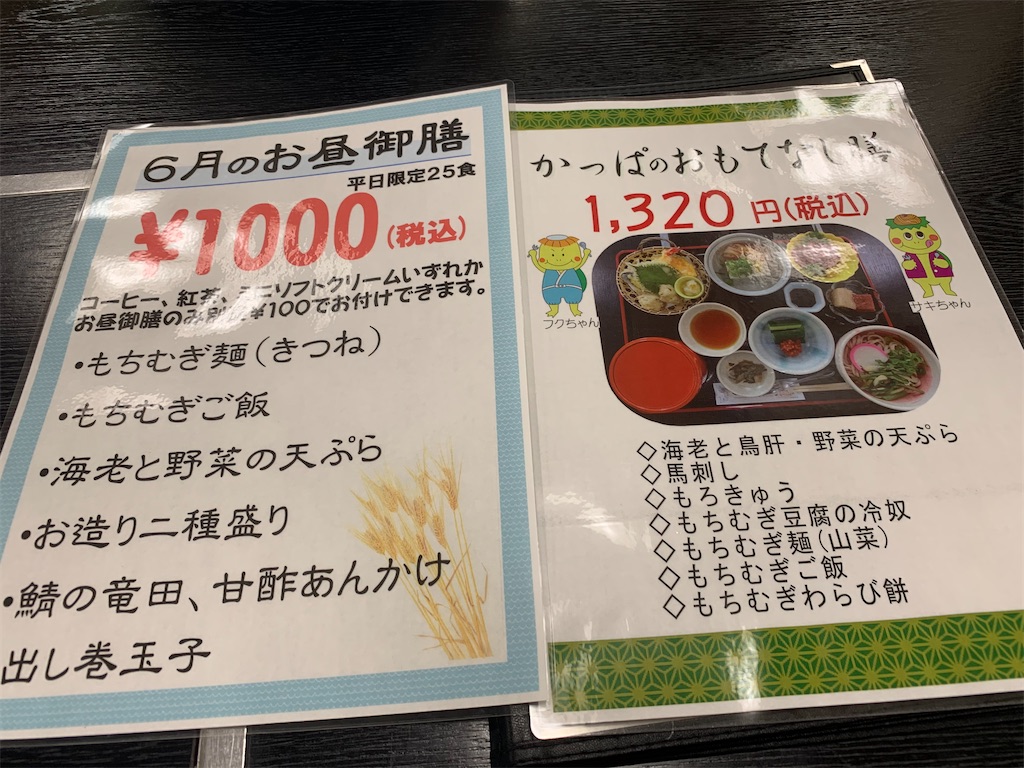 6月のお昼御膳
平日限定25食
¥1000(税込)
コーヒー、紅茶、ミニソフトクリームいずれか
お昼御膳のみ別途¥100でお付けできます。
・もちむぎ麺(きつね)
・もちむぎご飯
・海老と野菜の天ぷら
・お造り二種盛り
・鯖の竜田、甘酢あんかけ
出し巻玉子
かっぱのおもてなし膳
1,320円(税込)
フクちゃん
サキちゃん
◇海老と鳥肝・野菜の天ぷら
◇馬刺し
◇もろきゅう
◇もちむぎ豆腐の冷奴
◇もちむぎ麺(山菜)
◇もちむぎご飯
◇もちむぎわらび餅